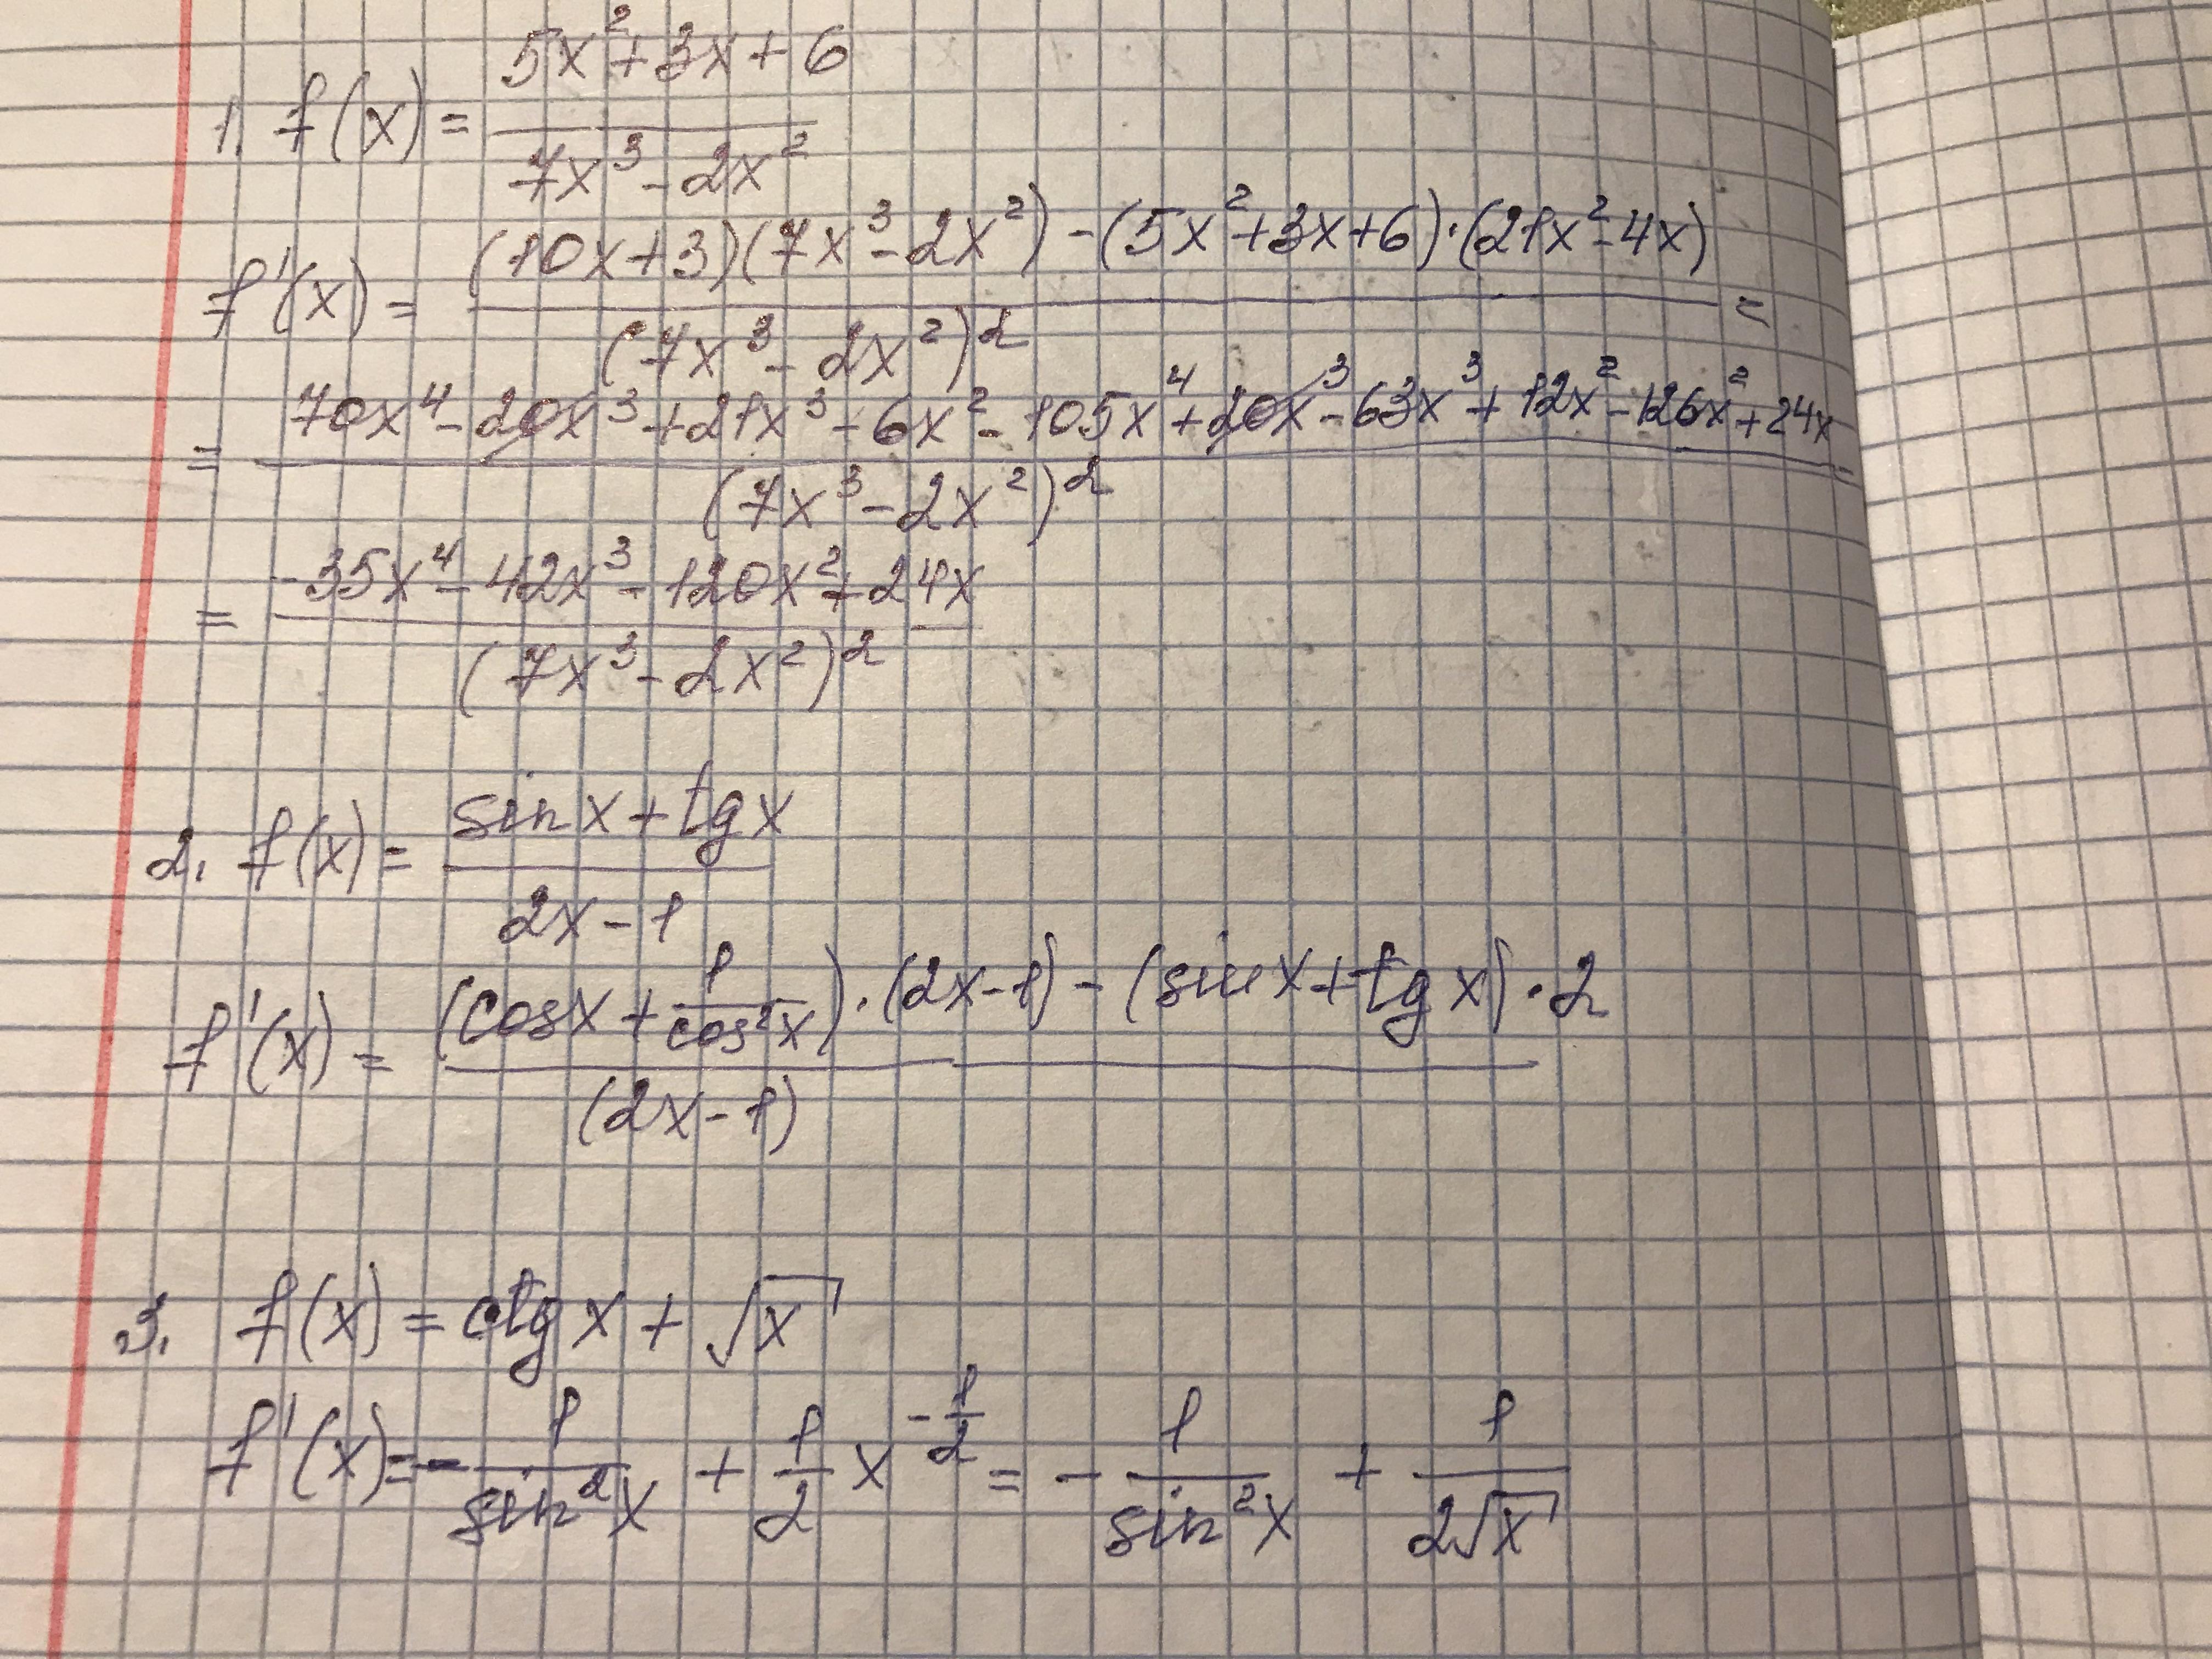 1. f(x) = (5x² + 3x + 6) / (7x³ - 2x²)
f'(x) = ((10x + 3)(7x³ - 2x²) - (5x² + 3x + 6)·(21x² - 4x)) / (7x³ - 2x²)² =
= (70x⁴ - 20x³ + 21x³ - 6x² - 105x⁴ + 20x³ - 63x³ + 12x² - 126x² + 24x) / (7x³ - 2x²)² =
= (-35x⁴ - 42x³ - 120x² + 24x) / (7x³ - 2x²)²
2. f(x) = (sin x + tg x) / (2x - 1)
f'(x) = ((cos x + 1/cos²x)·(2x - 1) - (sin x + tg x)·2) / (2x - 1)
3. f(x) = ctg x + √x
f'(x) = - 1/sin²x + 1/2 x^(-1/2) = - 1/sin²x + 1/(2√x)